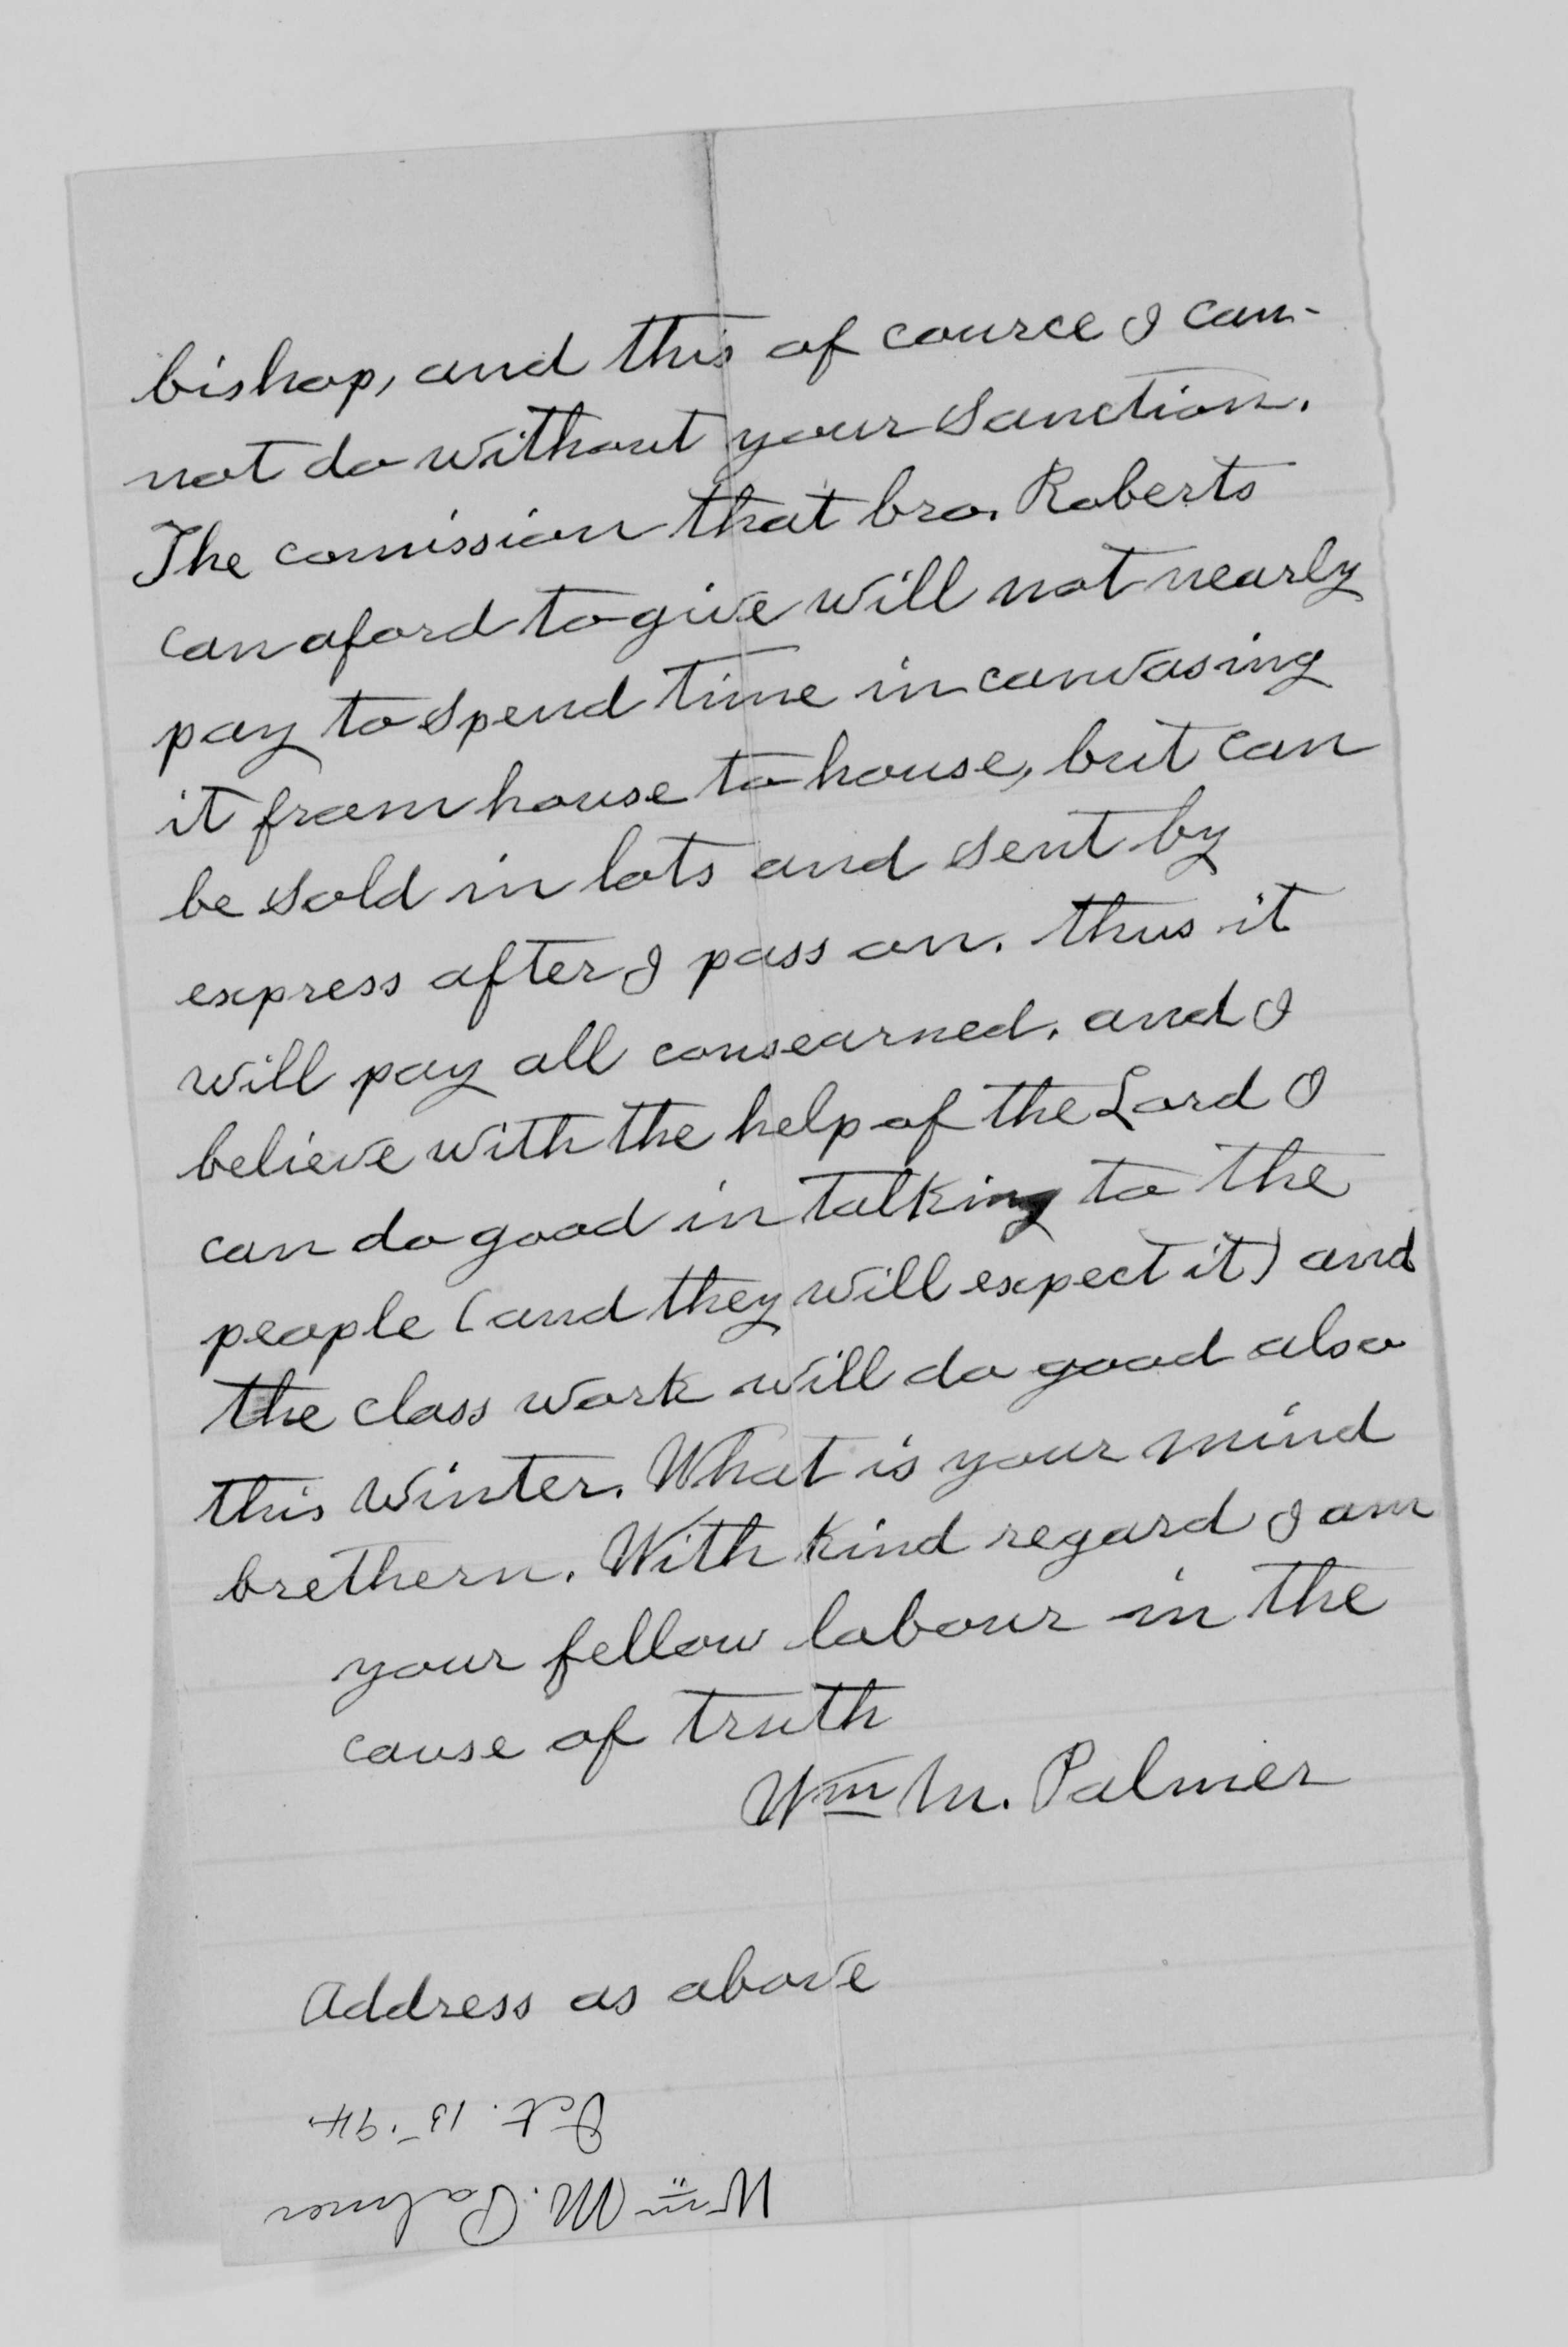 bishop, and this of cource I can-
not do without your sanction.
The comission that bro. Roberts
can aford to give will not nearly
pay to spend time in canvasing
it from house to house, but can
be sold in lots and sent by
express after I pass on. thus it
will pay all consearned. and I
believe with the help of the Lord I
can do good in talking to the
people (and they will expect it) and
the class work will do good also
this winter. What is your mind
brethern. With kind regard I am
your fellow labour in the
cause of truth
Wm M. Palmer
Address as above
Wm M. Palmer
Oct. 13 - 94.